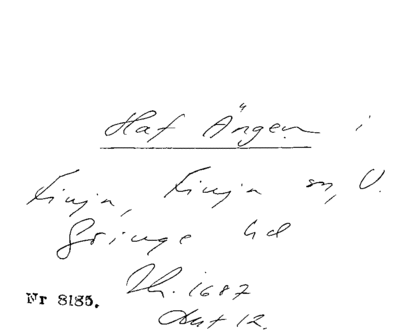 Haf Ängen i
Finja, Finja sn, V.
Göinge hd
Th. 1687
Avt 12.
Nr 8185.